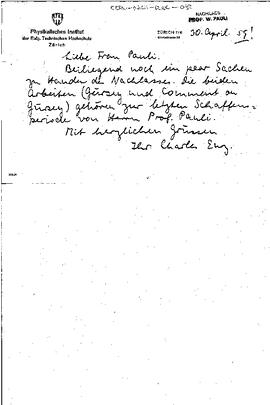 NACHLASS
PROF. W. PAULI
Physikalisches Institut
der Eidg. Technischen Hochschule
Zürich
ZÜRICH 7/6
30. April 59!
Liebe Frau Pauli.
Beiliegend noch ein paar Sachen
zu Handen des Nachlasses. Die beiden
Arbeiten (Gürsey und Comment on
Gürsey) gehören zur letzten Schaffens-
periode von Herrn Prof. Pauli.
Mit herzlichen Grüssen
Ihr Charles Enz.